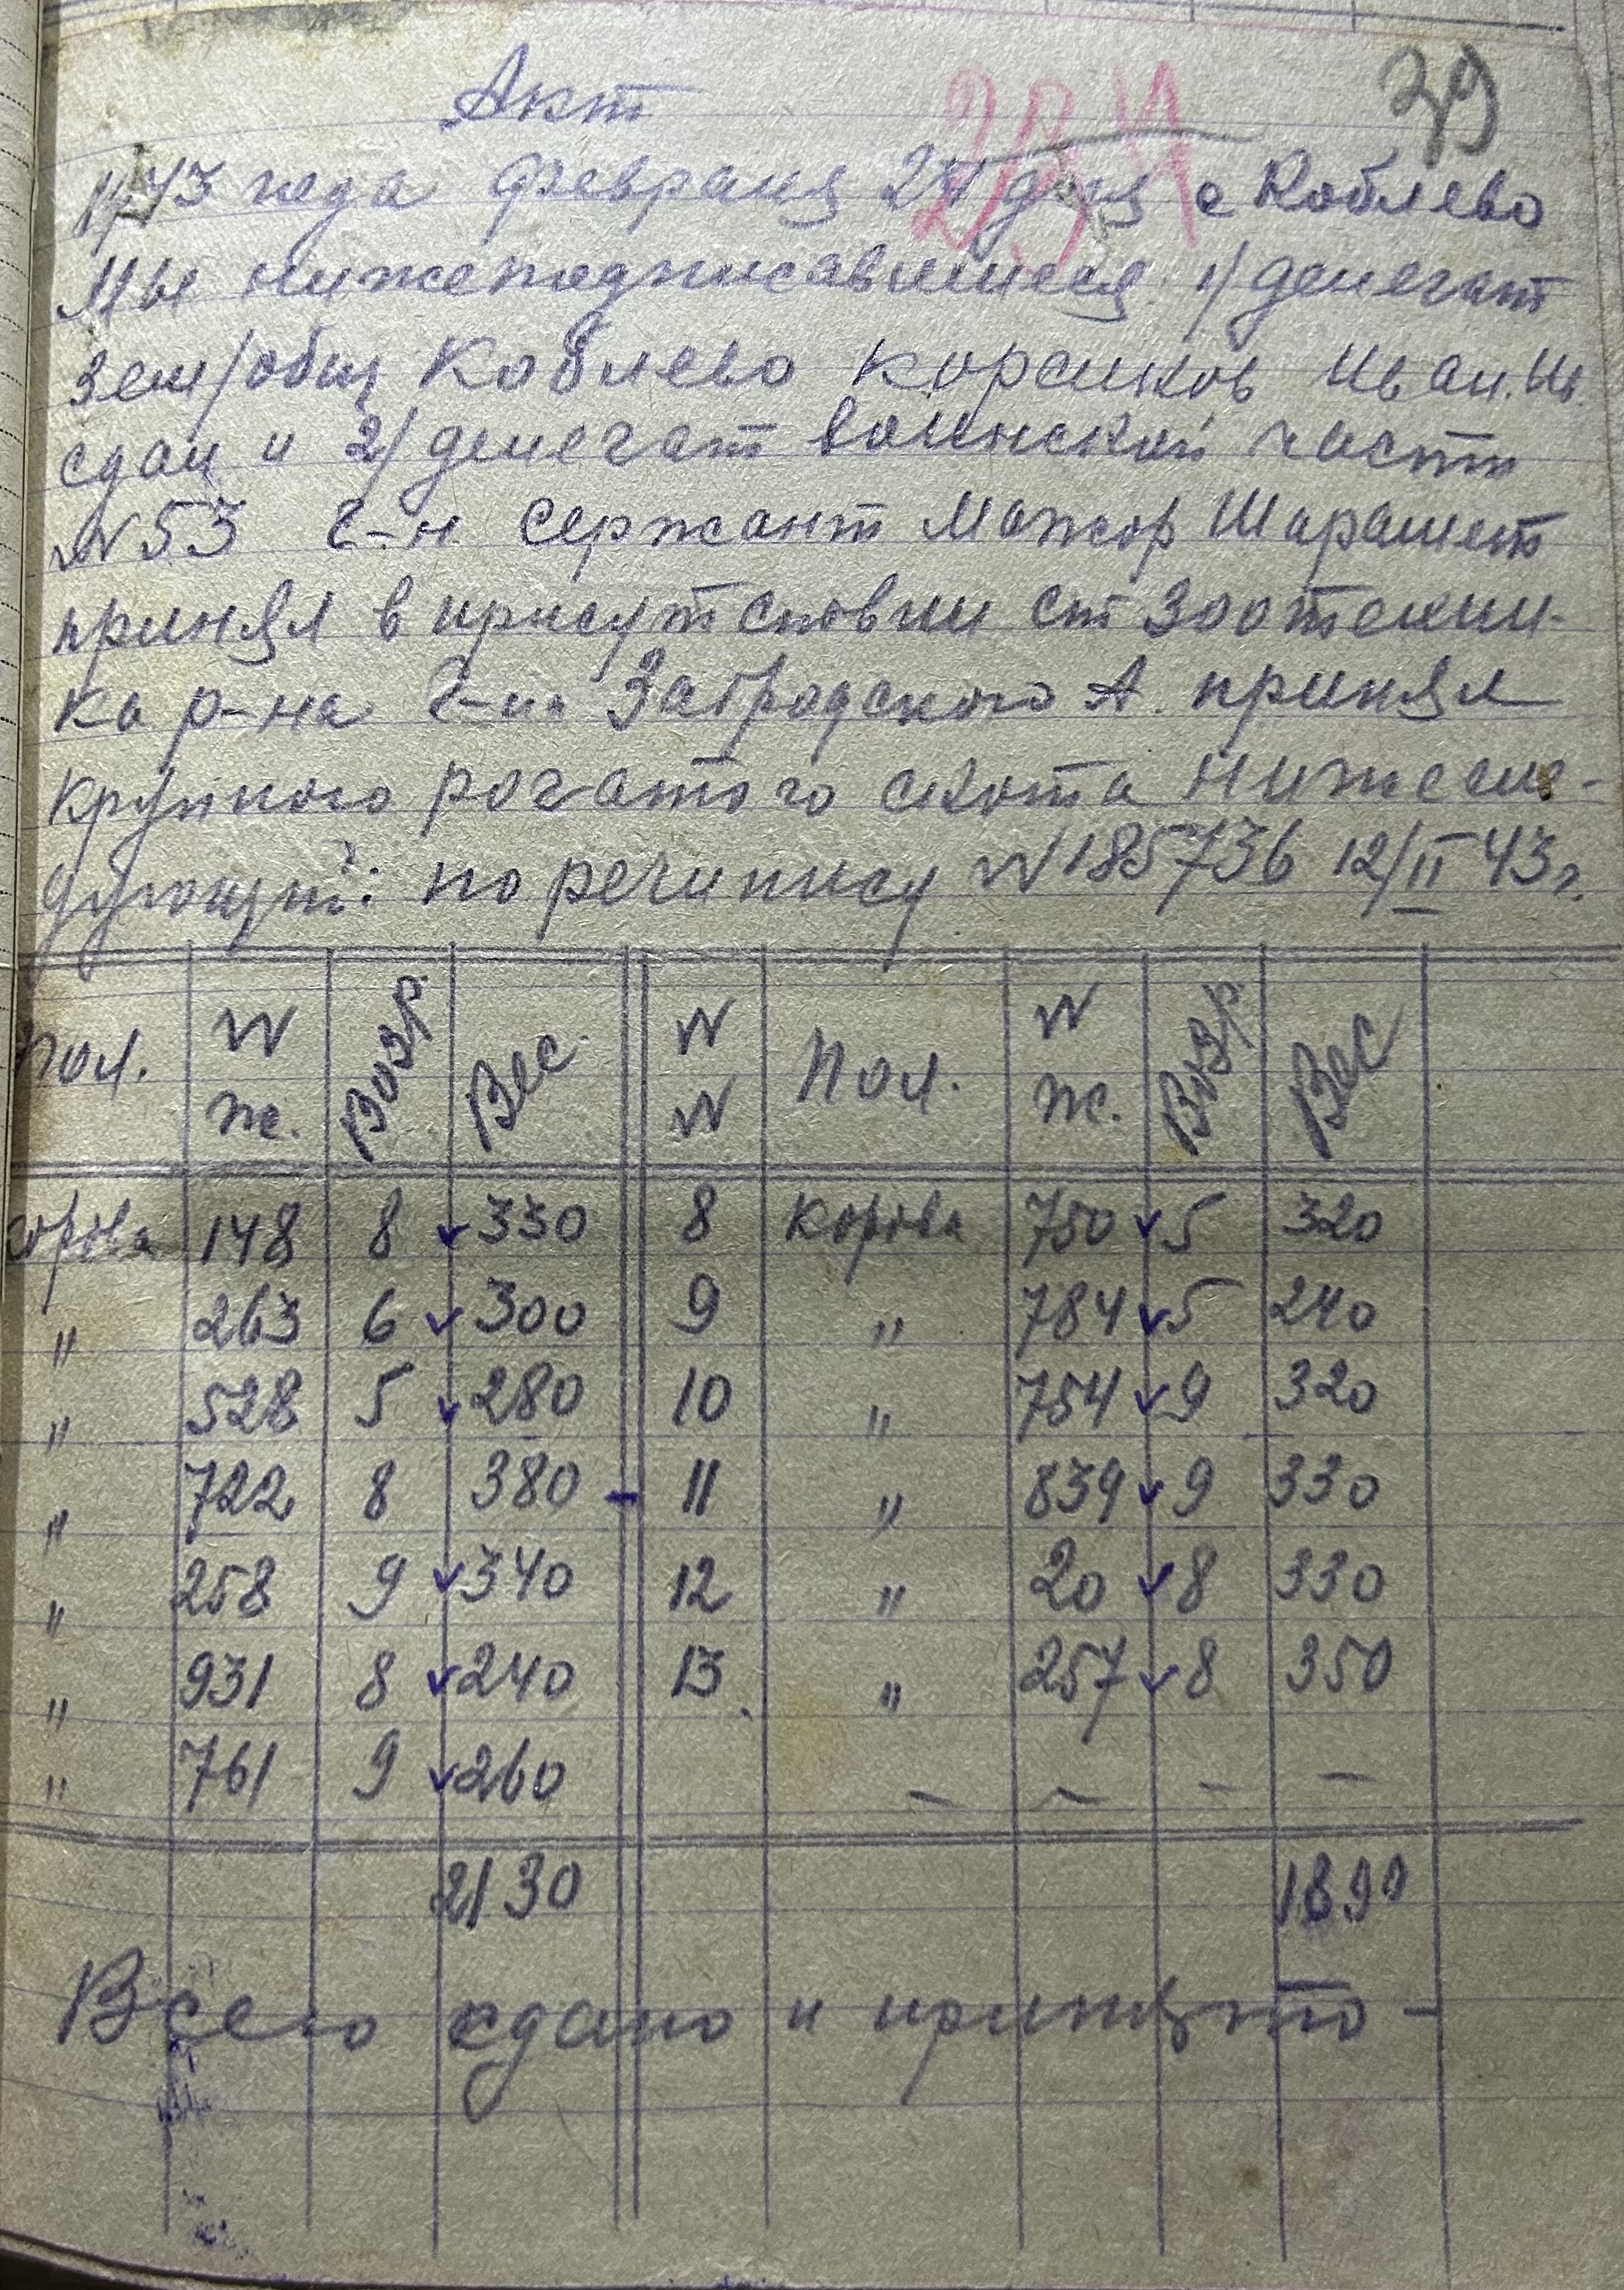 39
234
Акт
1943 года февраля 24 дня с Коблево
Мы нижеподписавшиеся 1/ делегат
Зем/общ Коблево Корсиков Иван. Ив.
сдал и 2/ делегат воинской части
N 53 г-н Сержант Мажор Шарамет
принял в присутствии ст Зоотехни-
ка р-на г-на Забродского А. принял
крупного рогатого скота нижесле-
дующий: по речипису N 185736 12/II 43 г.
Пол. N ж. Возр. Вес N N Пол. N ж. Возр. Вес
орова 148 8 ✓ 330 8 Корова 750 ✓ 5 320
" 263 6 ✓ 300 9 " 784 ✓ 5 240
" 528 5 ✓ 280 10 " 754 ✓ 9 320
" 722 8 380 - 11 " 839 ✓ 9 330
" 258 9 ✓ 340 12 " 20 ✓ 8 330
" 931 8 ✓ 240 13. " 257 ✓ 8 350
" 761 9 ✓ 260 – – – –
2130 1890
Всего сдано и принято -